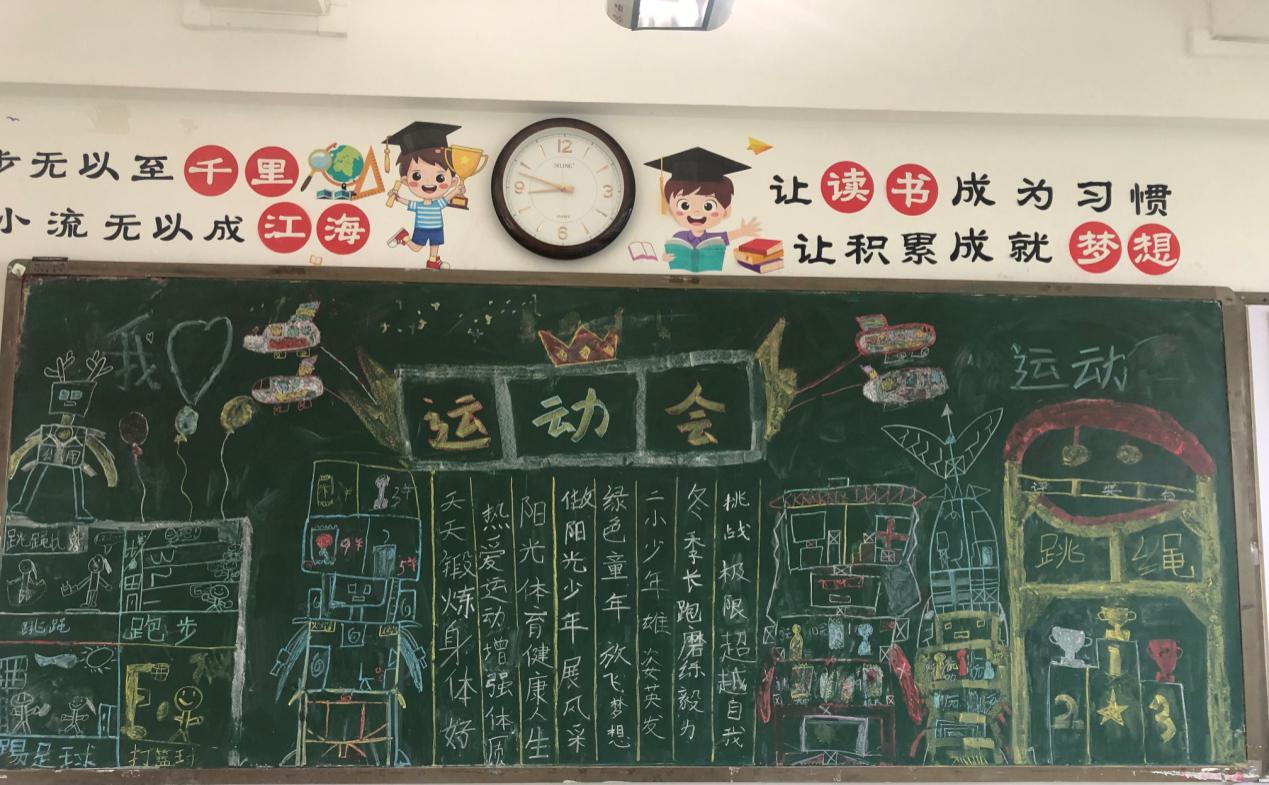 步无以至千里
小流无以成江海
12
3
6
9
让读书成为习惯
让积累成就梦想
我
运动
运动会
挑战极限超越自我
冬季长跑磨练毅力
二小少年雄姿英发
绿色童年放飞梦想
做阳光少年展风采
阳光体育健康人生
热爱运动增强体质
天天锻炼身体好
跳绳
跑步
踢足球
打篮球
跳绳
2
1
3